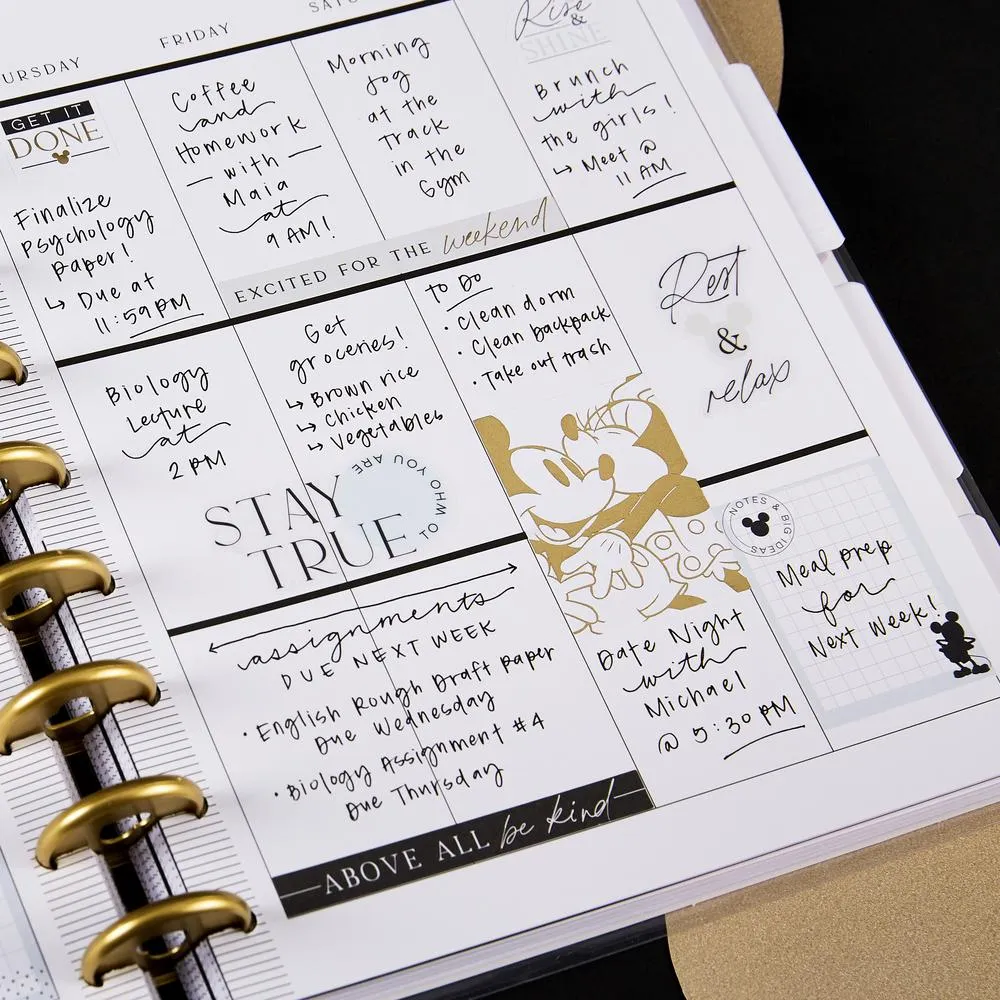 URSDAY
FRIDAY
SATU
GET IT
DONE
Finalize
Psychology
paper!
↳ Due at
11:59 PM
Coffee
and
Homework
— with —
Maia
at
9 AM!
Morning
Jog
at the
Track
in the
Gym
Rise
&
SHINE
Brunch
with
the girls!
↳ Meet @
11 AM
EXCITED FOR THE weekend
Biology
Lecture
at
2 PM
Get
groceries!
↳ Brown rice
↳ Chicken
↳ Vegetables
TO DO
· Clean dorm
· Clean backpack
· Take out trash
Rest
&
relax
STAY
TRUE
TO WHO YOU ARE
assignments
DUE NEXT WEEK
· English Rough Draft Paper
Due Wednesday
· Biology Assignment #4
Due Thursday
Date Night
with
Michael
@ 5:30 PM
NOTES & BIG IDEAS
Meal prep
for
Next Week!
ABOVE ALL be kind